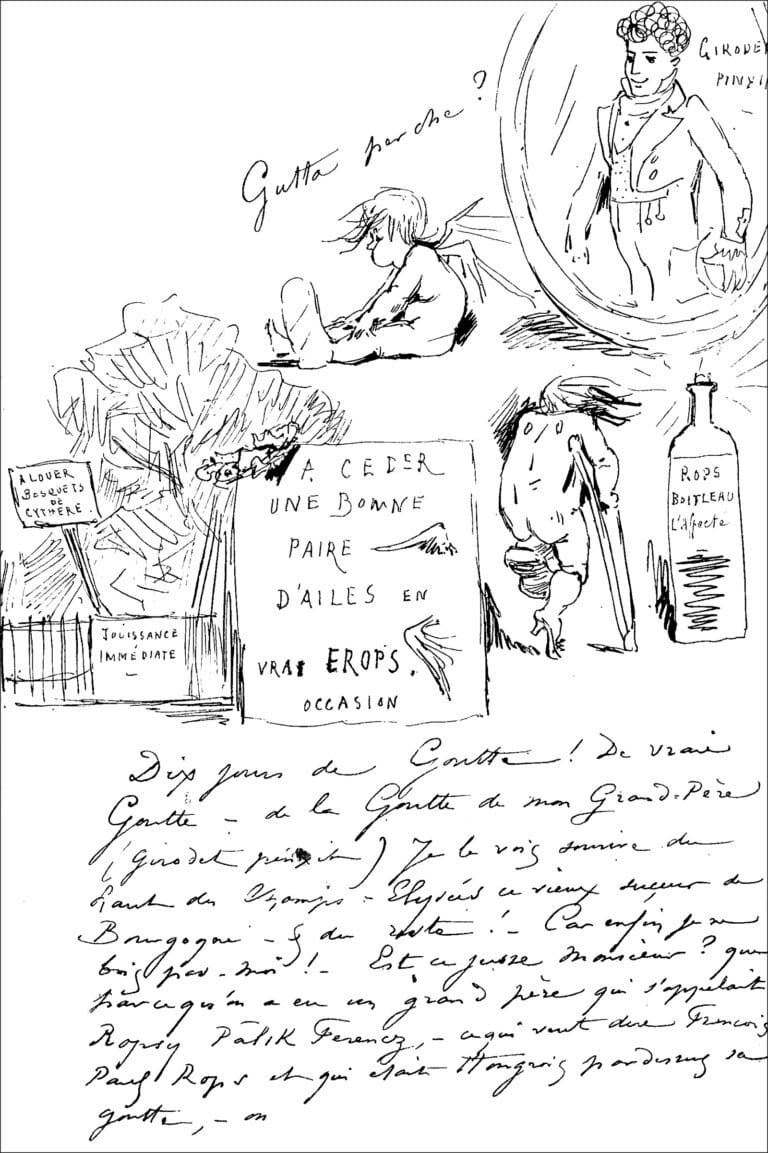 Gutta perche?
GIRODET
PINXIT
A LOUER
BOSQUETS
DE
CYTHÈRE.
JOUISSANCE
IMMÉDIATE
A CEDER
UNE BONNE
PAIRE
D'AILES EN
VRAI EROPS.
OCCASION
ROPS
BOITLEAU
L'Affecté
Dix jours de Goutte! De vraie
Goutte - de la Goutte de mon Grand-Père
(Girodet pinxit) Je le vois sourire du
haut des Champs-Elysées ce vieux suceur de
Bourgogne - & du reste! - Car enfin je ne
bois pas - moi! - Est ce juste Monsieur? que
parcequ'on a eu un grand père qui s'appelait
Ropsy Pàlik Ferencz, - ce qui veut dire François
Paul Rops et qui était Hongrois pardessus sa
goutte, - on